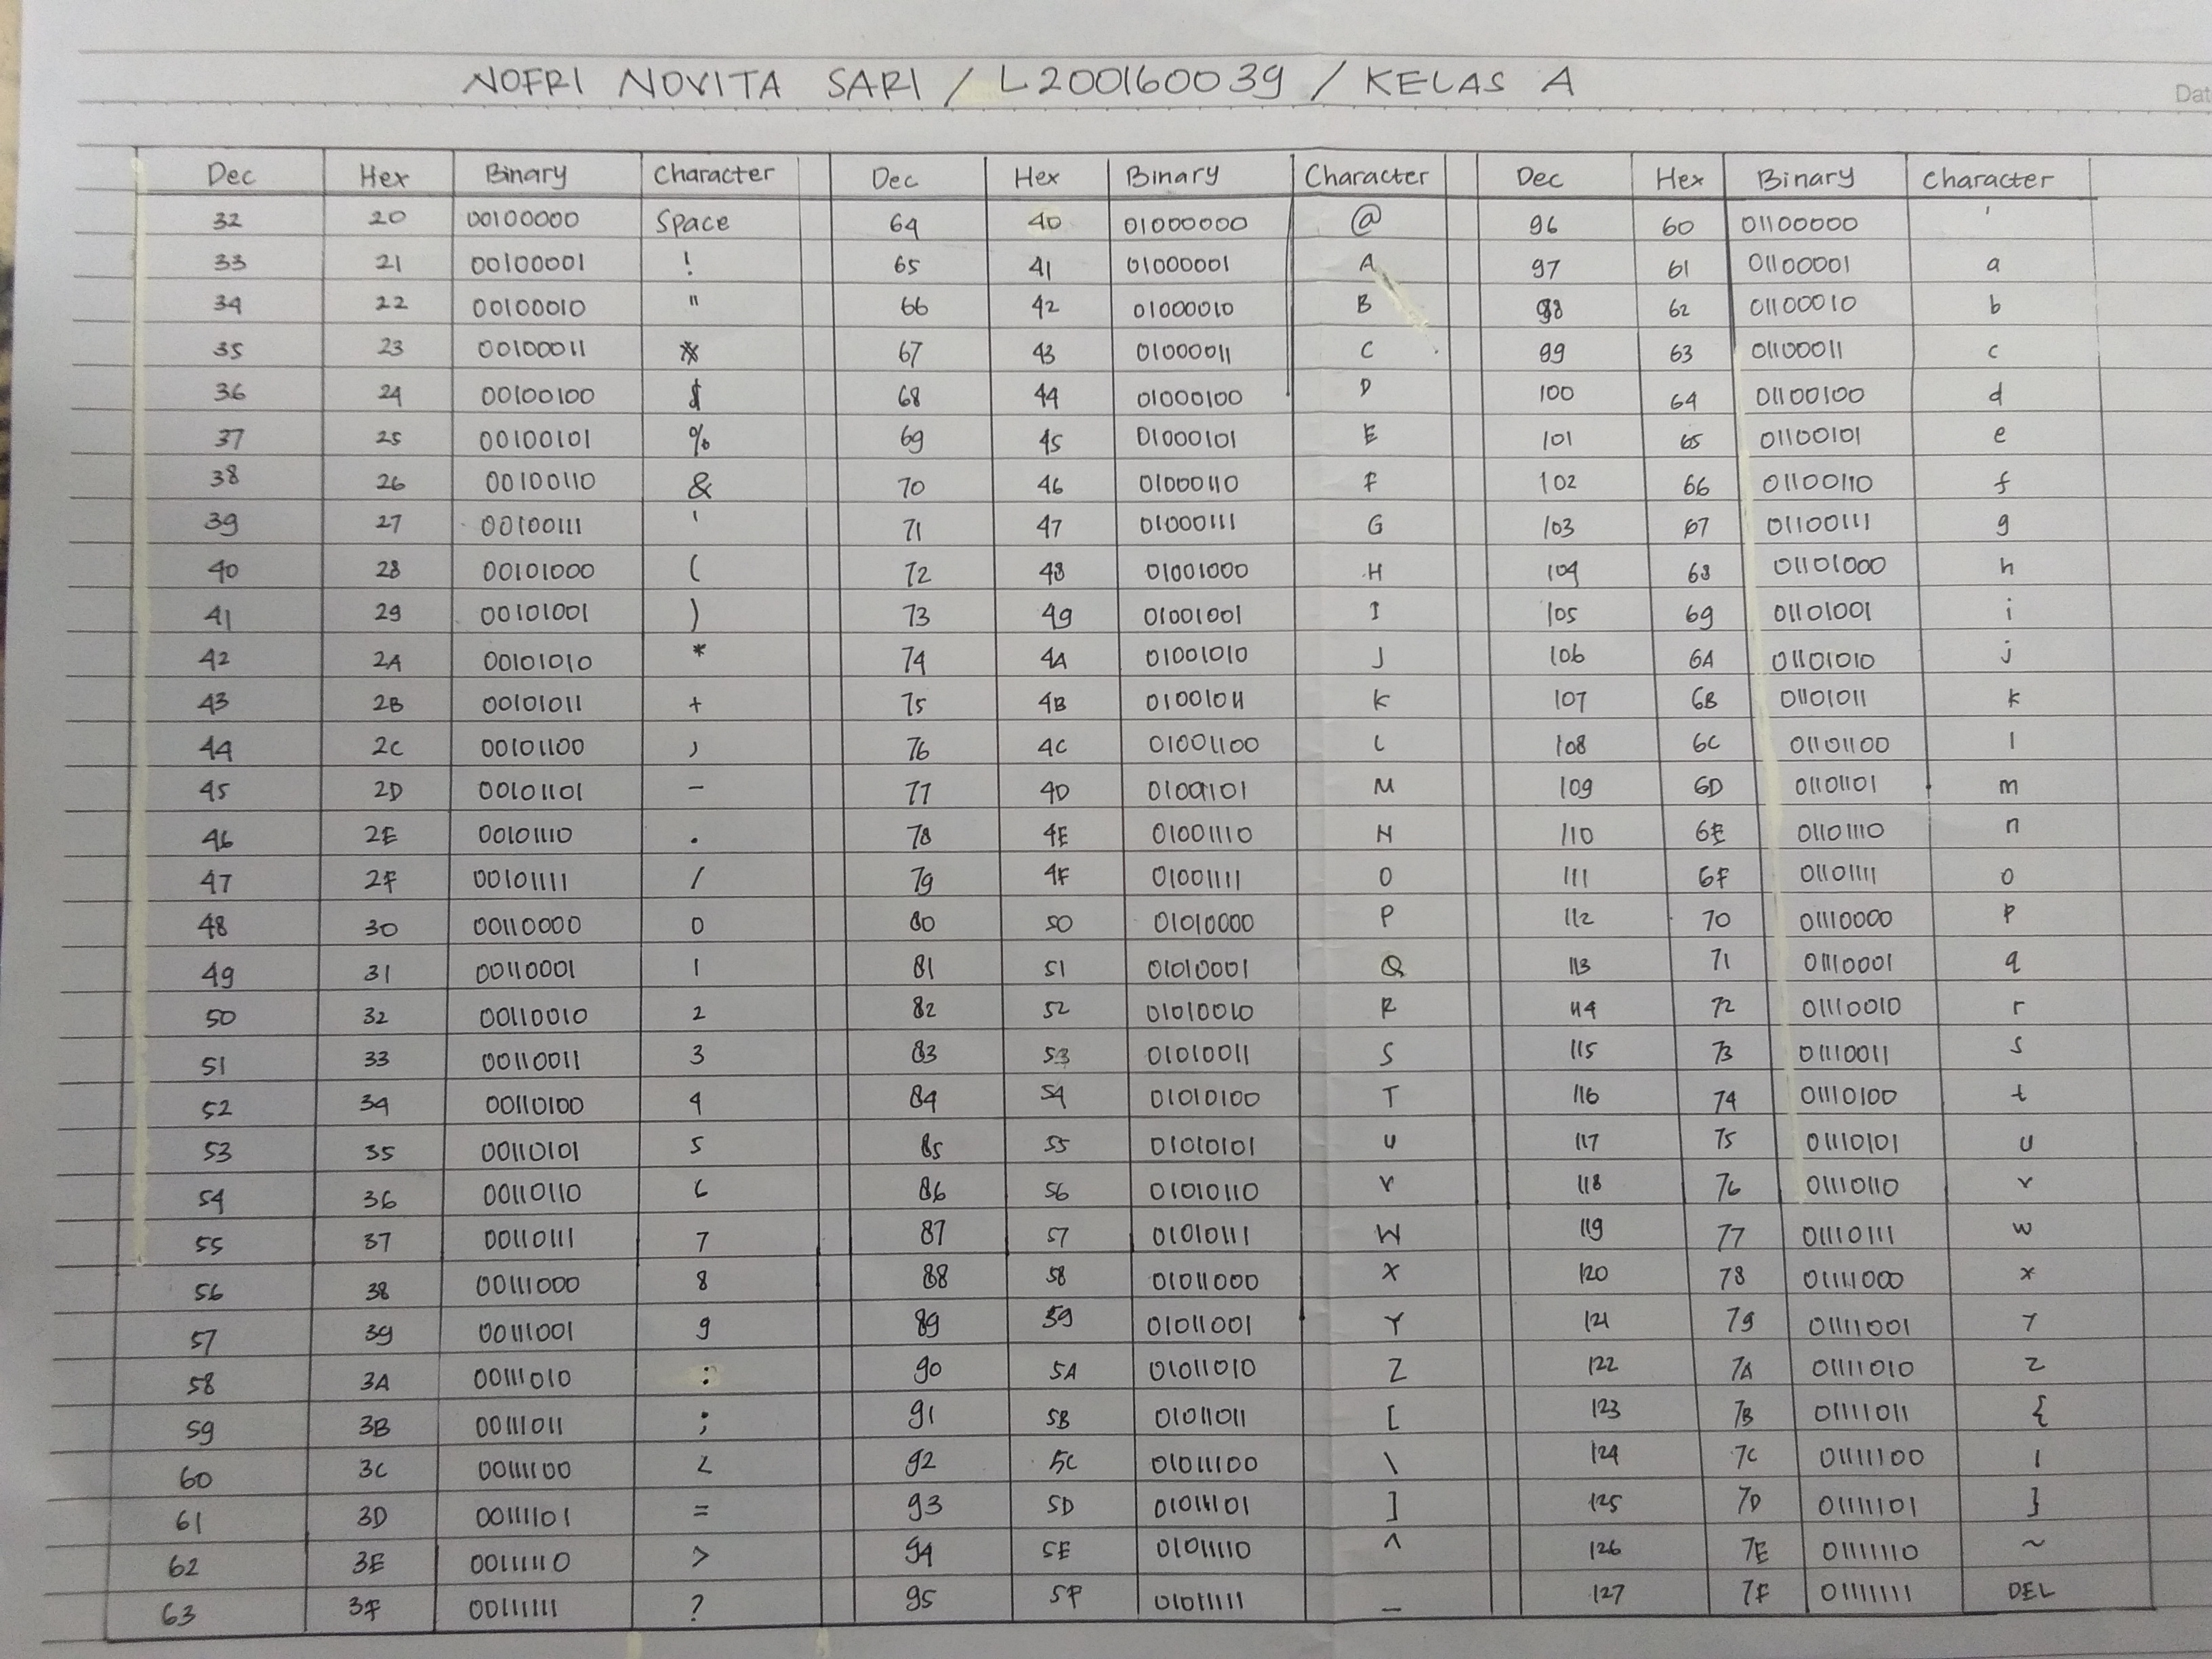 NOFRI NOVITA SARI / L200160039 / KELAS A
Dat
Dec Hex Binary Character Dec Hex Binary Character Dec Hex Binary Character
32 20 00100000 Space 64 40 01000000 @ 96 60 01100000 '
33 21 00100001 ! 65 41 01000001 A 97 61 01100001 a
34 22 00100010 " 66 42 01000010 B 98 62 01100010 b
35 23 00100011 * 67 43 01000011 C 99 63 01100011 c
36 24 00100100 $ 68 44 01000100 D 100 64 01100100 d
37 25 00100101 % 69 45 01000101 E 101 65 01100101 e
38 26 00100110 & 70 46 01000110 F 102 66 01100110 f
39 27 00100111 ' 71 47 01000111 G 103 67 01100111 g
40 28 00101000 ( 72 48 01001000 H 104 68 01101000 h
41 29 00101001 ) 73 49 01001001 I 105 69 01101001 i
42 2A 00101010 * 74 4A 01001010 J 106 6A 01101010 j
43 2B 00101011 + 75 4B 01001011 K 107 6B 01101011 k
44 2C 00101100 , 76 4C 01001100 L 108 6C 01101100 l
45 2D 00101101 - 77 4D 01001101 M 109 6D 01101101 m
46 2E 00101110 . 78 4E 01001110 N 110 6E 01101110 n
47 2F 00101111 / 79 4F 01001111 O 111 6F 01101111 o
48 30 00110000 0 80 50 01010000 P 112 70 01110000 p
49 31 00110001 1 81 51 01010001 Q 113 71 01110001 q
50 32 00110010 2 82 52 01010010 R 114 72 01110010 r
51 33 00110011 3 83 53 01010011 S 115 73 01110011 s
52 34 00110100 4 84 54 01010100 T 116 74 01110100 t
53 35 00110101 5 85 55 01010101 U 117 75 01110101 u
54 36 00110110 6 86 56 01010110 V 118 76 01110110 v
55 37 00110111 7 87 57 01010111 W 119 77 01110111 w
56 38 00111000 8 88 58 01011000 X 120 78 01111000 x
57 39 00111001 9 89 59 01011001 Y 121 79 01111001 Y
58 3A 00111010 : 90 5A 01011010 Z 122 7A 01111010 z
59 3B 00111011 ; 91 5B 01011011 [ 123 7B 01111011 {
60 3C 00111100 < 92 5C 01011100 \ 124 7C 01111100 |
61 3D 00111101 = 93 5D 01011101 ] 125 7D 01111101 }
62 3E 00111110 > 94 5E 01011110 ^ 126 7E 01111110 ~
63 3F 00111111 ? 95 5F 01011111 _ 127 7F 01111111 DEL